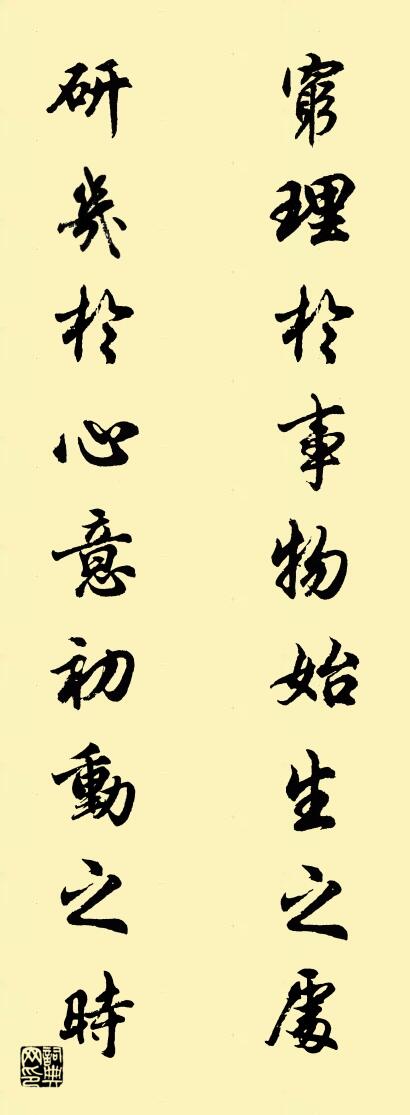 窮理於事物始生之處
研幾於心意初動之時
詞典網印